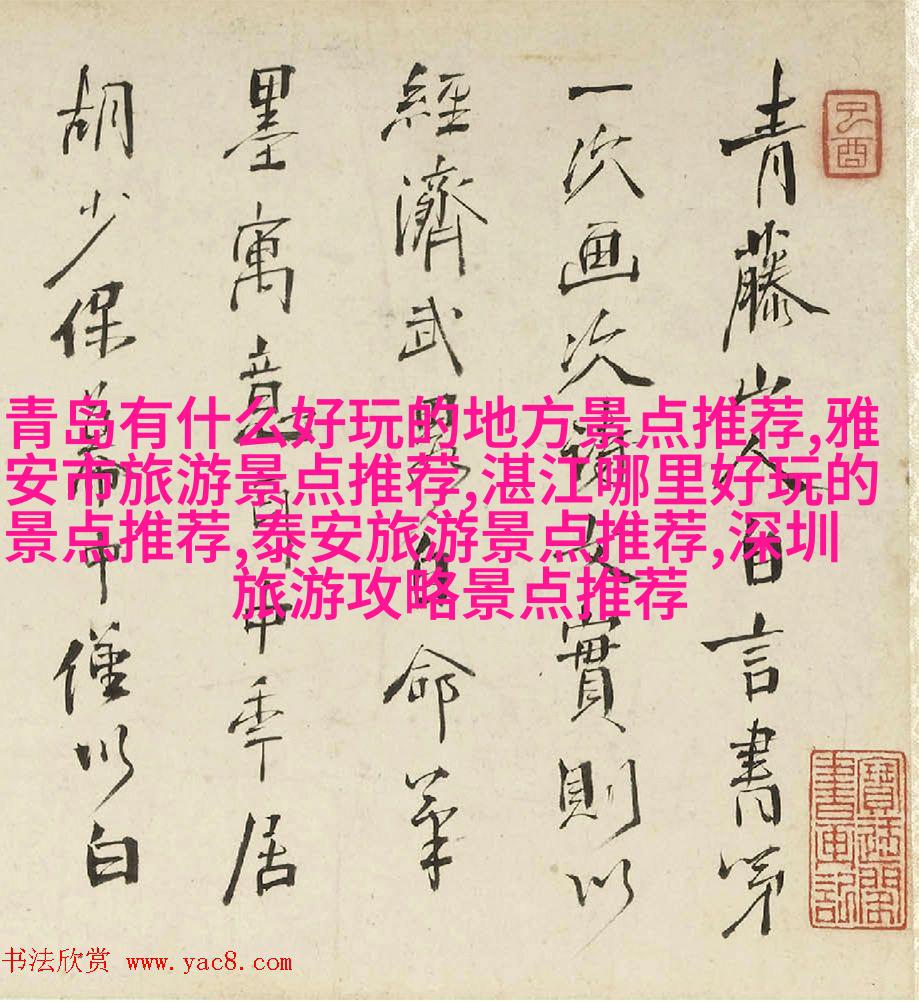 青藤山人自言書第
一次画次詩文實則以
經濟武畧自命筆
墨寓意中年居
胡少保幕中僅以白
己酉
寶迂閣
書画記
青岛有什么好玩的地方景点推荐,雅
安市旅游景点推荐,湛江哪里好玩的
景点推荐,泰安旅游景点推荐,深圳
旅游攻略景点推荐
书法欣赏 www.yac8.com